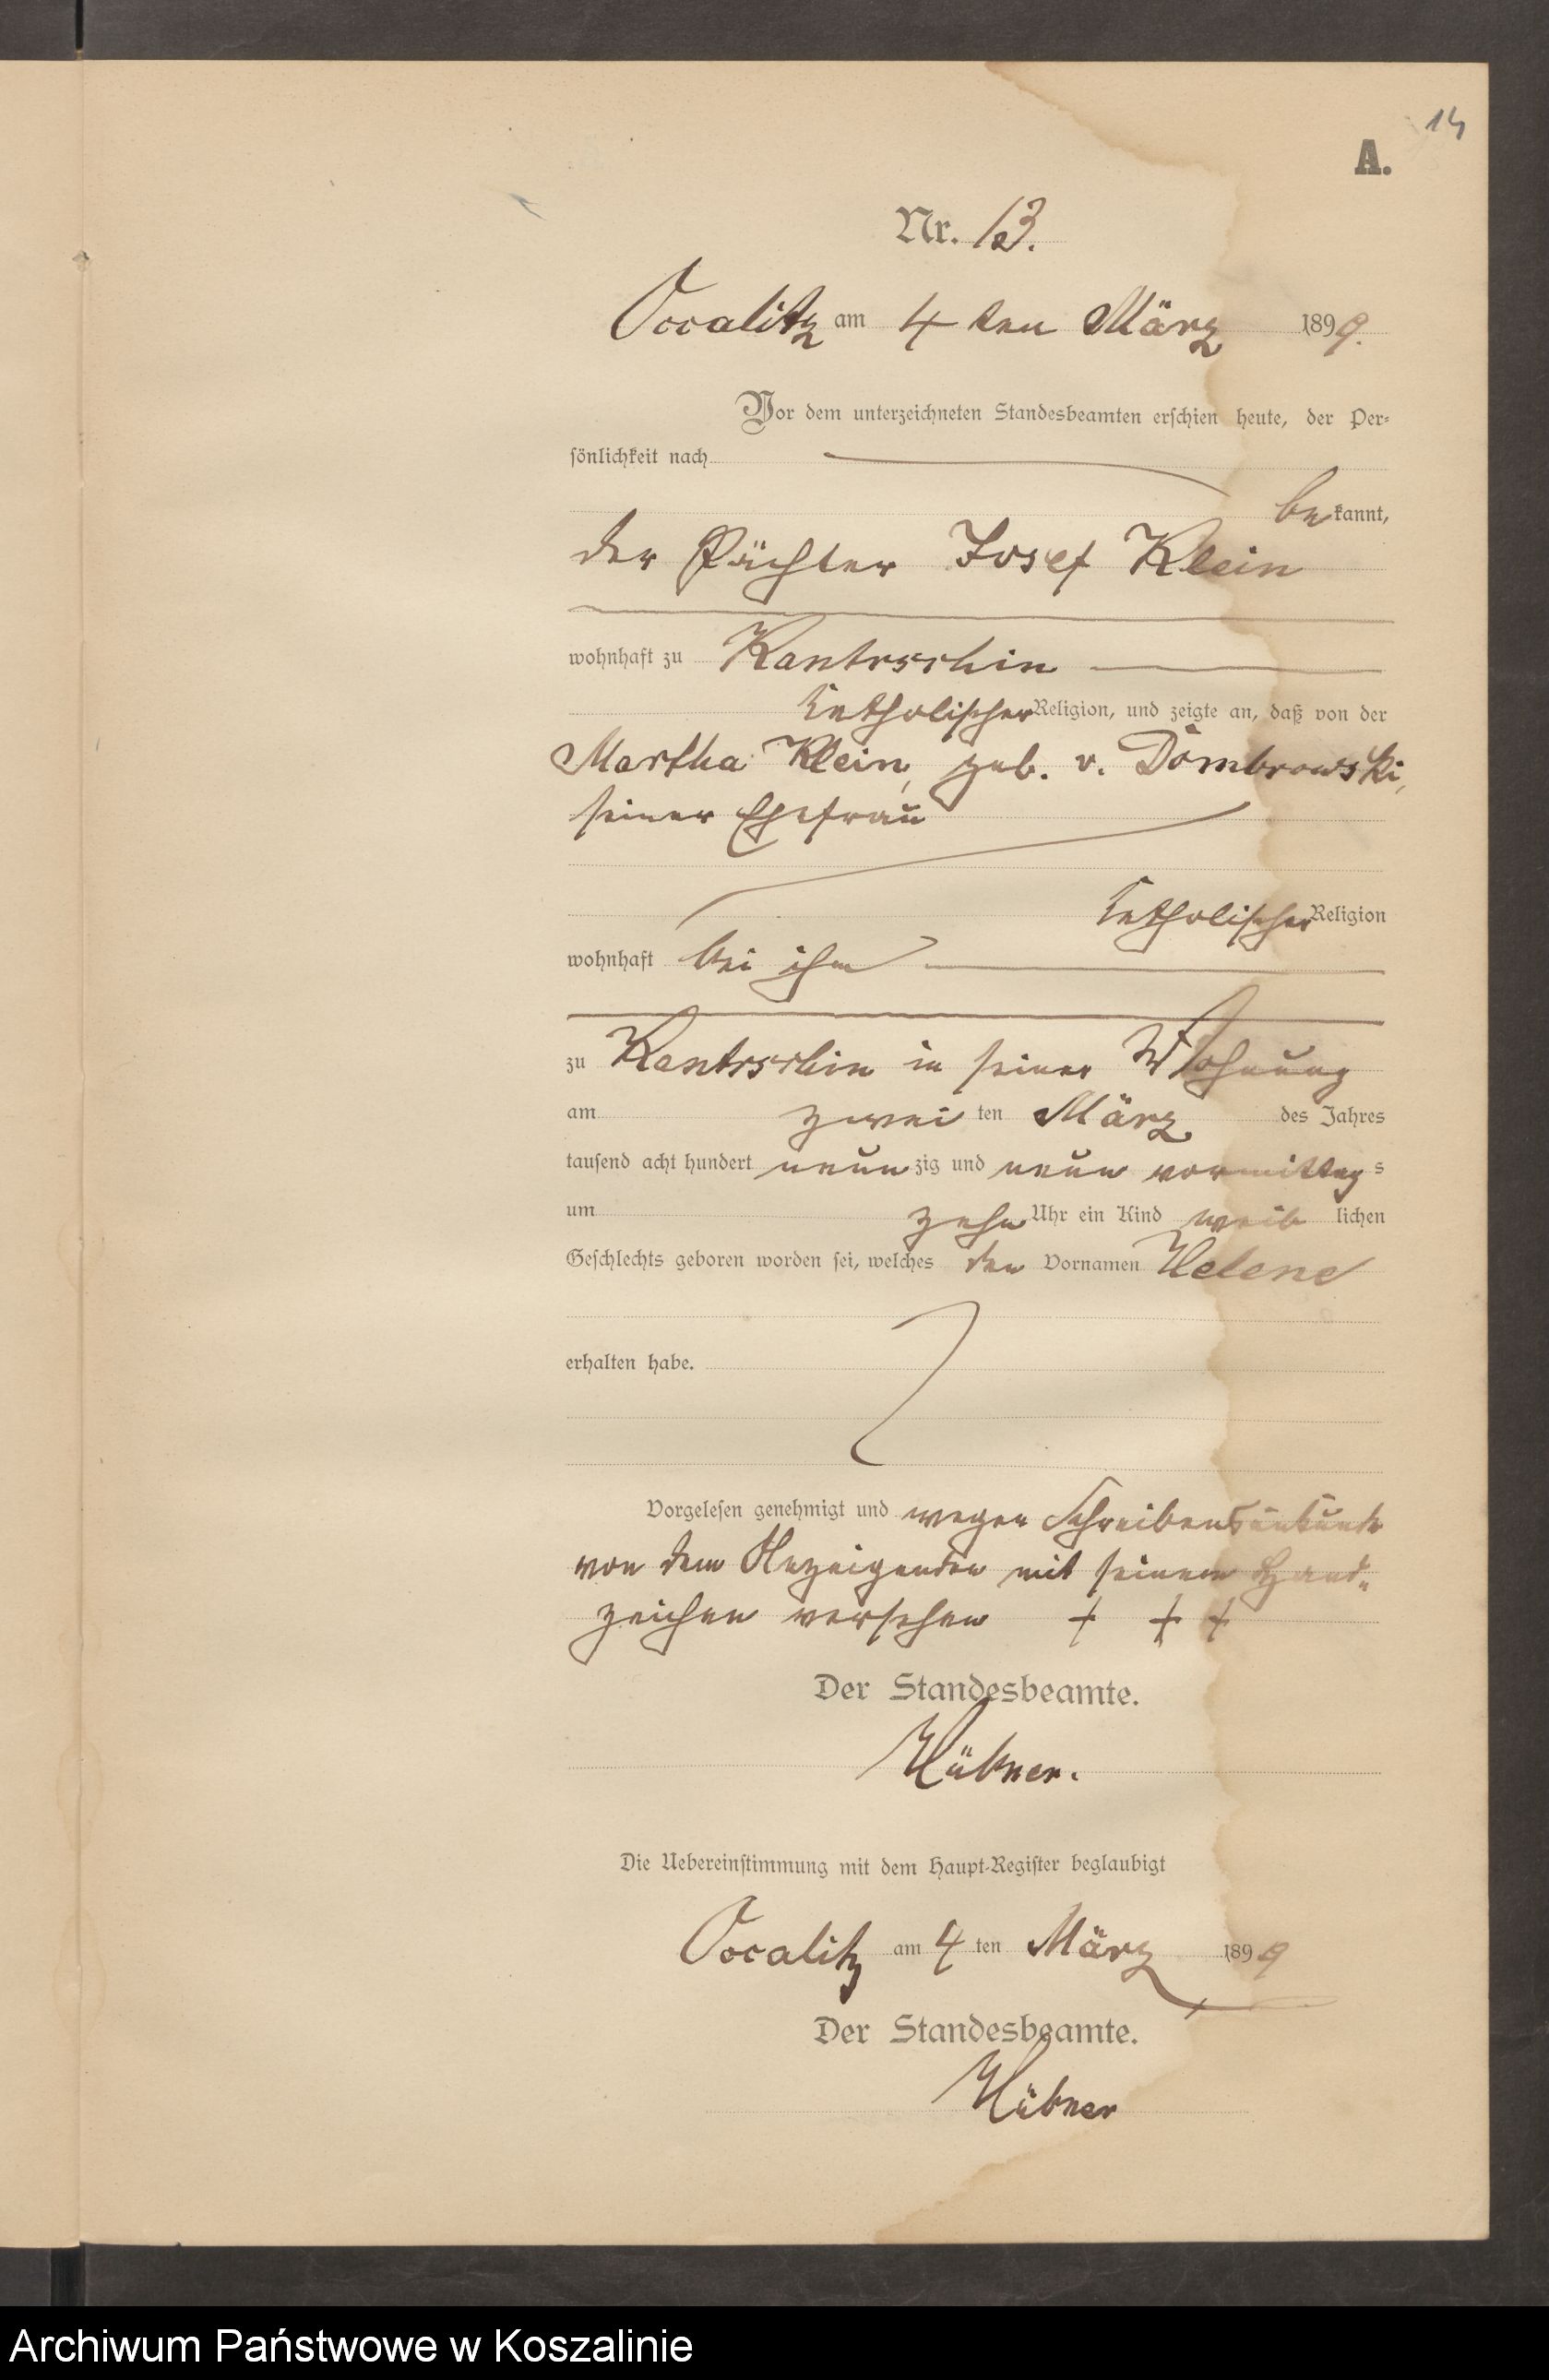 14
A.
Nr. 13.
Occalitz am 4 ten März 1899.
Vor dem unterzeichneten Standesbeamten erschien heute, der Per-
sönlichkeit nach
be kannt,
der Pächter Josef Klein
wohnhaft zu Kantrschin
katholischer Religion, und zeigte an, daß von der
Martha Klein, geb. v. Dombrowski,
seiner Ehefrau
katholischer Religion
wohnhaft bei ihm
zu Kantrschin in seiner Wohnung
am zwei ten März des Jahres
tausend acht hundert neun zig und neun vormittag s
um zehn Uhr ein Kind weib lichen
Geschlechts geboren worden sei, welches den Vornamen Helene
erhalten habe.
Vorgelesen genehmigt und wegen Schreibensunkunde
von dem Anzeigenden mit seinem Hand-
zeichen versehen + + +
Der Standesbeamte.
Hübner.
Die Uebereinstimmung mit dem Haupt-Register beglaubigt
Occalitz am 4 ten März 1899
Der Standesbeamte.
Hübner
Archiwum Państwowe w Koszalinie